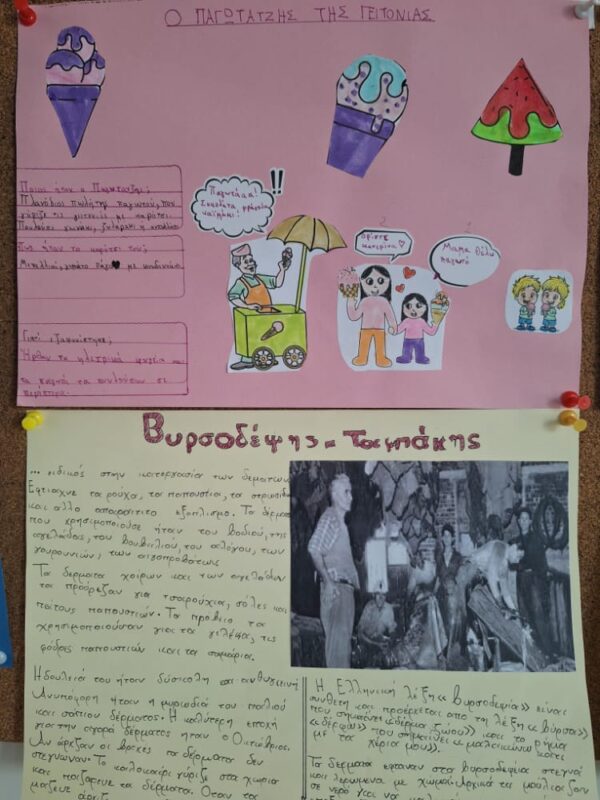 Ο ΠΑΓΩΤΑΤΖΗΣ ΤΗΣ ΓΕΙΤΟΝΙΑΣ
Ποιος ήταν ο Παγωτατζής;
Πλανόδιος πωλητής παγωτού, που
γύριζε τις γειτονιές με καρότσι.
Πουλούσε χωνάκι, ξυλαράκι ή
Πως ήταν το καρότσι του;
Μεταλλικό, γεμάτο πάγο με
Γιατί εξαφανίστηκε;
Ήρθαν τα ηλεκτρικά ψυγεία και
τα παγωτά τα πουλούσαν σε
περίπτερα.
Παγωτάαα!
!!
Ορίστε
κοριτσάκι
Μαμά θέλω
παγωτό
Βυρσοδέψης - Ταμπάκης
... ειδικός στην κατεργασία των δερμάτων
Έφτιαχνε τα ρούχα, τα παπούτσια, τα
και άλλο απαραίτητο εξοπλισμό. Τα δέρματα
που χρησιμοποιούσε ήταν του βοδιού, της
αγελάδας, του βουβαλιού, του αλόγου, των
γουρουνιών, των αιγοπροβάτων.
Τα δέρματα χοίρων και των αγελάδων
τα προόριζαν για τσαρούχια, σόλες και
πάτους παπουτσιών. Τα πρόβεια τα
χρησιμοποιούσαν για τα γελέκα, τις
φόδρες παπουτσιών και τα σαμάρια.
Η δουλειά του ήταν δύσκολη και ανθυγιεινή
Ανυπόφορη ήταν η μυρωδιά του παλιού
και σάπιου δέρματος. Η καλύτερη εποχή
για την αγορά δέρματος ήταν ο Οκτώβριος.
Αν άρχιζαν οι βροχές τα δέρματα δεν
στέγνωναν. Το καλοκαίρι γύριζε στα χωριά
και παζάρευε τα δέρματα. Όταν τα
μάζευε
Η Ελληνική λέξη «βυρσοδεψία» είναι
σύνθετη και προέρχεται από τη λέξη «βύρσα»
που σημαίνει «δέρμα ζώου» και το ρήμα
«δέφω» που σημαίνει «μαλακώνω κάτι
με τα χέρια μου».
Τα δέρματα έφταναν στα βυρσοδεψεία στεγνά
και λερωμένα με χώμα. Αρχικά τα μούλιαζαν
σε νερό για να